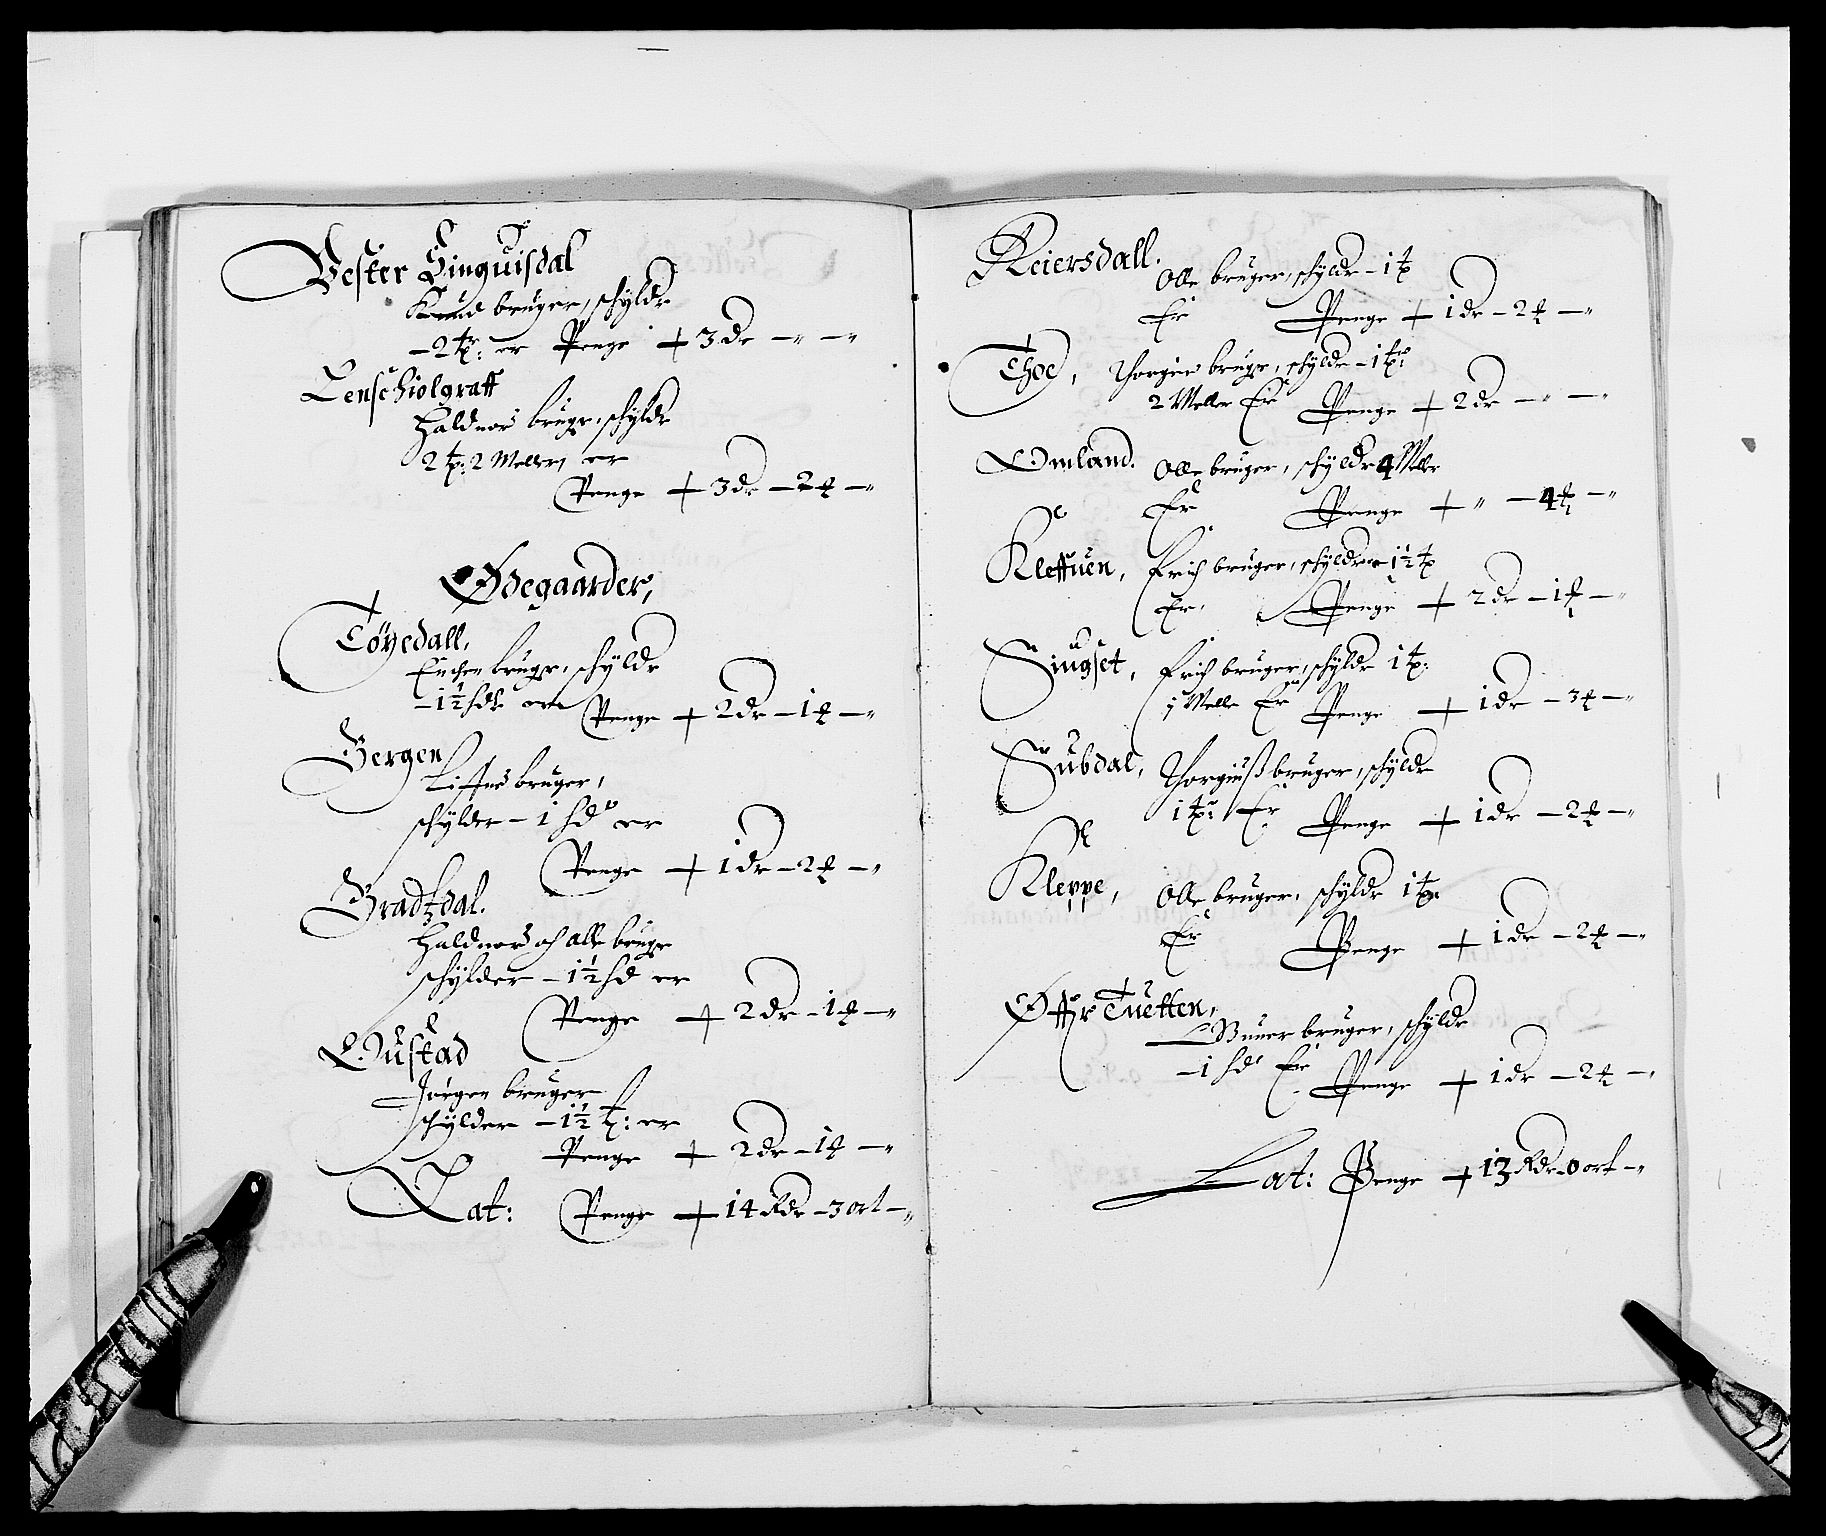 Vester Singuisdal
Knud bruger, schylder
– 2 tp: er Penge + 3 dr – " – "
Censchiolgraff
Haldvor bruger, schylder
2 tp: 2 Meller, er
Penge + 3 dr – 2 ꝉ – "
Ødegaarder,
Tøyedall,
bruger, schylder
– 1½ hd er Penge + 2 dr – 1 ꝉ – "
Bergen
bruger,
schylder – 1 hd er
Penge + 1 dr – 2 ꝉ – "
Bradtzdal.
Haldvor och Alle bruger
schylder – 1½ hd er
Penge + 2 dr – 1 ꝉ – "
Oustad
Jørgen bruger
schylder – 1½ t: er
Penge + 2 dr – 1 ꝉ – "
Lat: Penge + 14 Rdr – 3 ort – "
Reiersdall.
Olle bruger, schylder – 1 tp
Er Penge + 1 dr – 2 ꝉ – "
Thoe, bruger, schylder – 1 tp:
2 Meller Er Penge + 2 dr – " – "
Omland. Olle bruger, schylder 4 Meller
Er Penge + " – 4 ꝉ – "
Kleffuen, Erich bruger, schylder 1½ tp
Er Penge + 2 dr – 1 ꝉ – "
Siugset, Erich bruger, schylder 1 tp:
1 Melle Er Penge + 1 dr – 3 ꝉ – "
Subdal, Thorgiuß bruger, schylder
1 tp: Er Penge + 1 dr – 2 ꝉ – "
Kleppe, Olle bruger, schylder 1 tp:
Er Penge + 1 dr – 2 ꝉ – "
Øffr Tuetten,
Guner bruger, schylder
– 1 hd Er Penge + 1 dr – 2 ꝉ – "
Lat: Penge + 13 Rdr – 0 ort – "